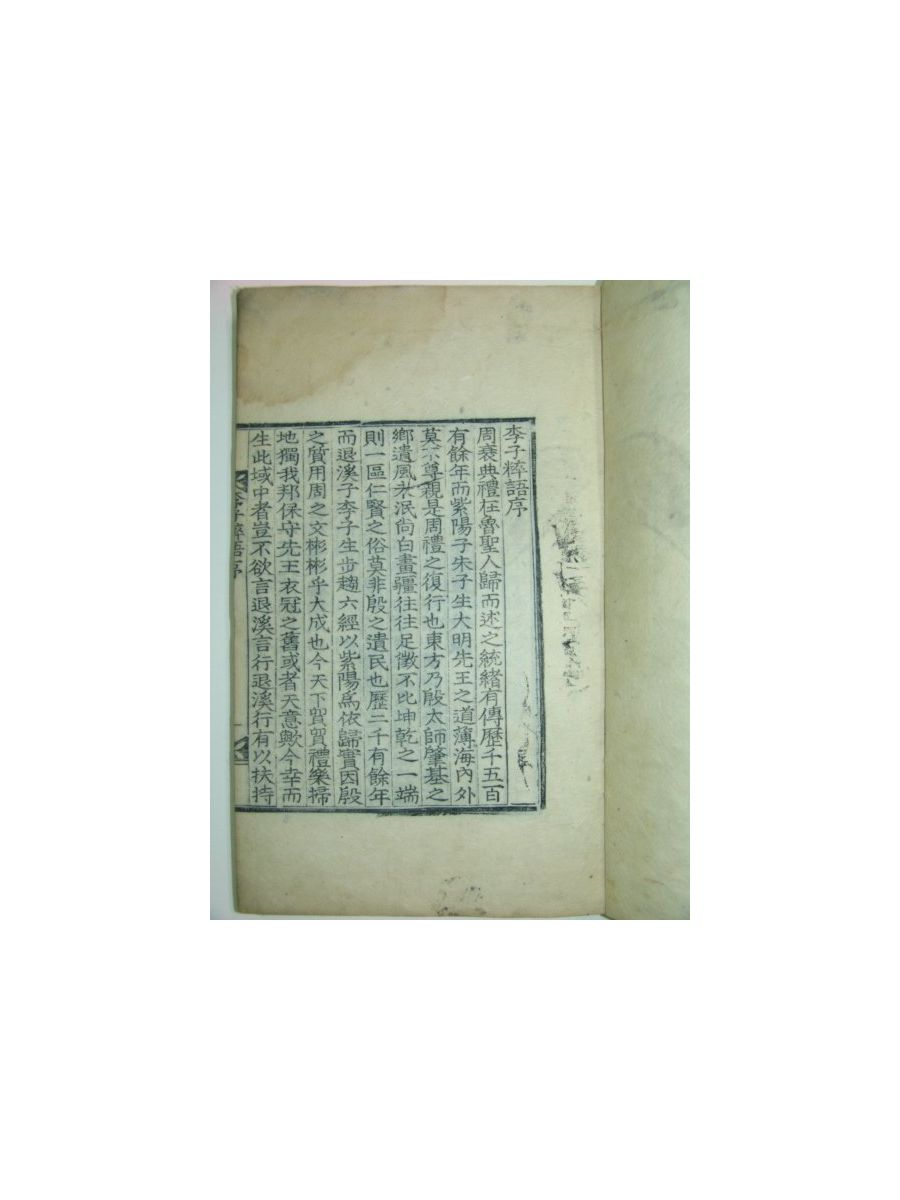 李子粹語序
周衰典禮在魯聖人歸而述之統緒有傳歷千五百
有餘年而紫陽子朱子生大明先王之道薄海內外
莫不尊親是周禮之復行也東方乃殷太師肇基之
鄉遺風未泯尙白畫疆往往足徵不比坤乾之一端
則一區仁賢之俗莫非殷之遺民也歷二千有餘年
而退溪子李子生步趨六經以紫陽爲依歸實因殷
之質用周之文彬彬乎大成也今天下貿貿禮樂掃
地獨我邦保守先王衣冠之舊或者天意歟今幸而
生此域中者豈不欲言退溪言行退溪行有以扶持
李子粹語序
一